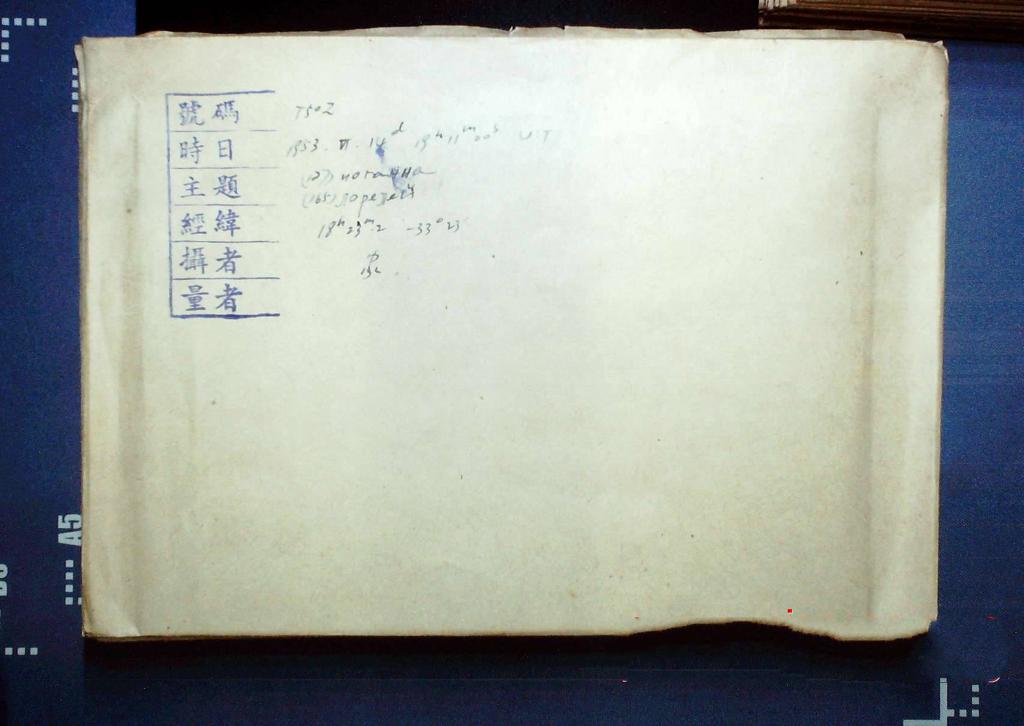 號碼 T502
時日 1953. VI. 14ᵈ 19ʰ 11ᵐ 00ˢ U.T
主題 (127) иоганна
(165) лорелей
經緯 18ʰ 23ᵐ.2 -33° 23'
攝者
量者
A5